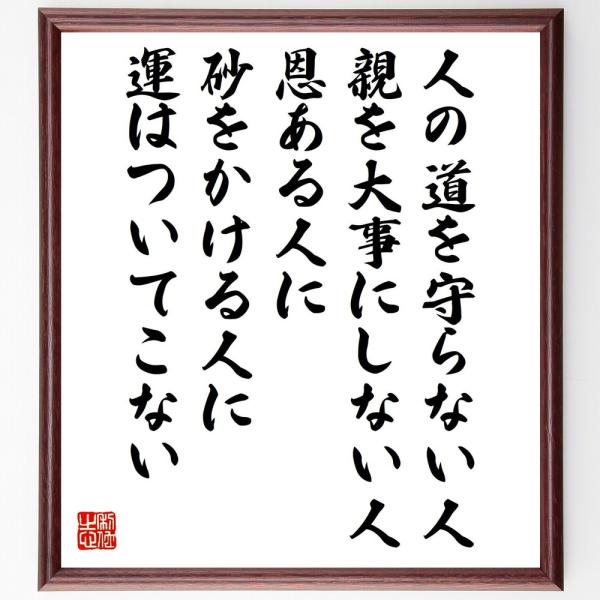 人の道を守らない人
親を大事にしない人
恩ある人に
砂をかける人に
運はついてこない